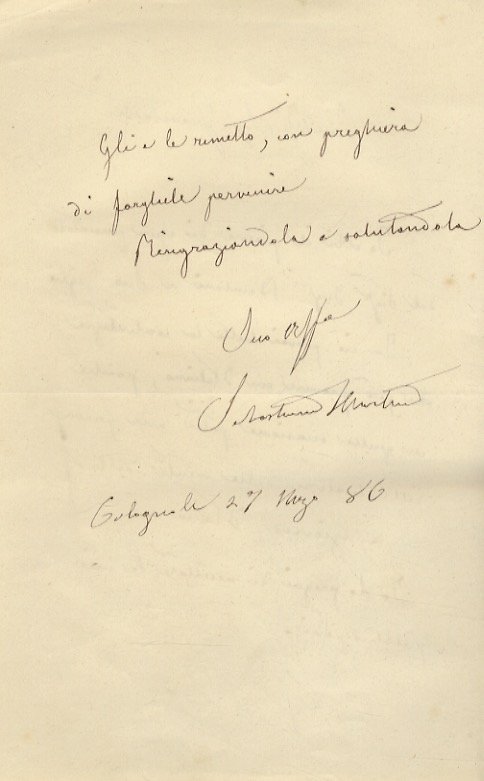 Gli e le rimetto, con preghiera
di farghiele pervenire
Ringraziandola e salutandola
Suo Aff.
Sebastiano Martini
27 86